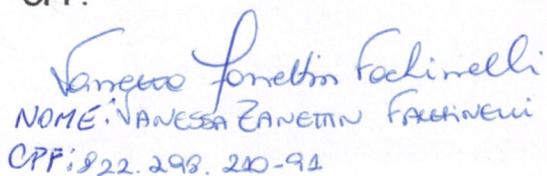 CPF:
Vanessa Zanettin Fachinelli
NOME: VANESSA ZANETTIN FACHINELLI
CPF: 822.298.210-91